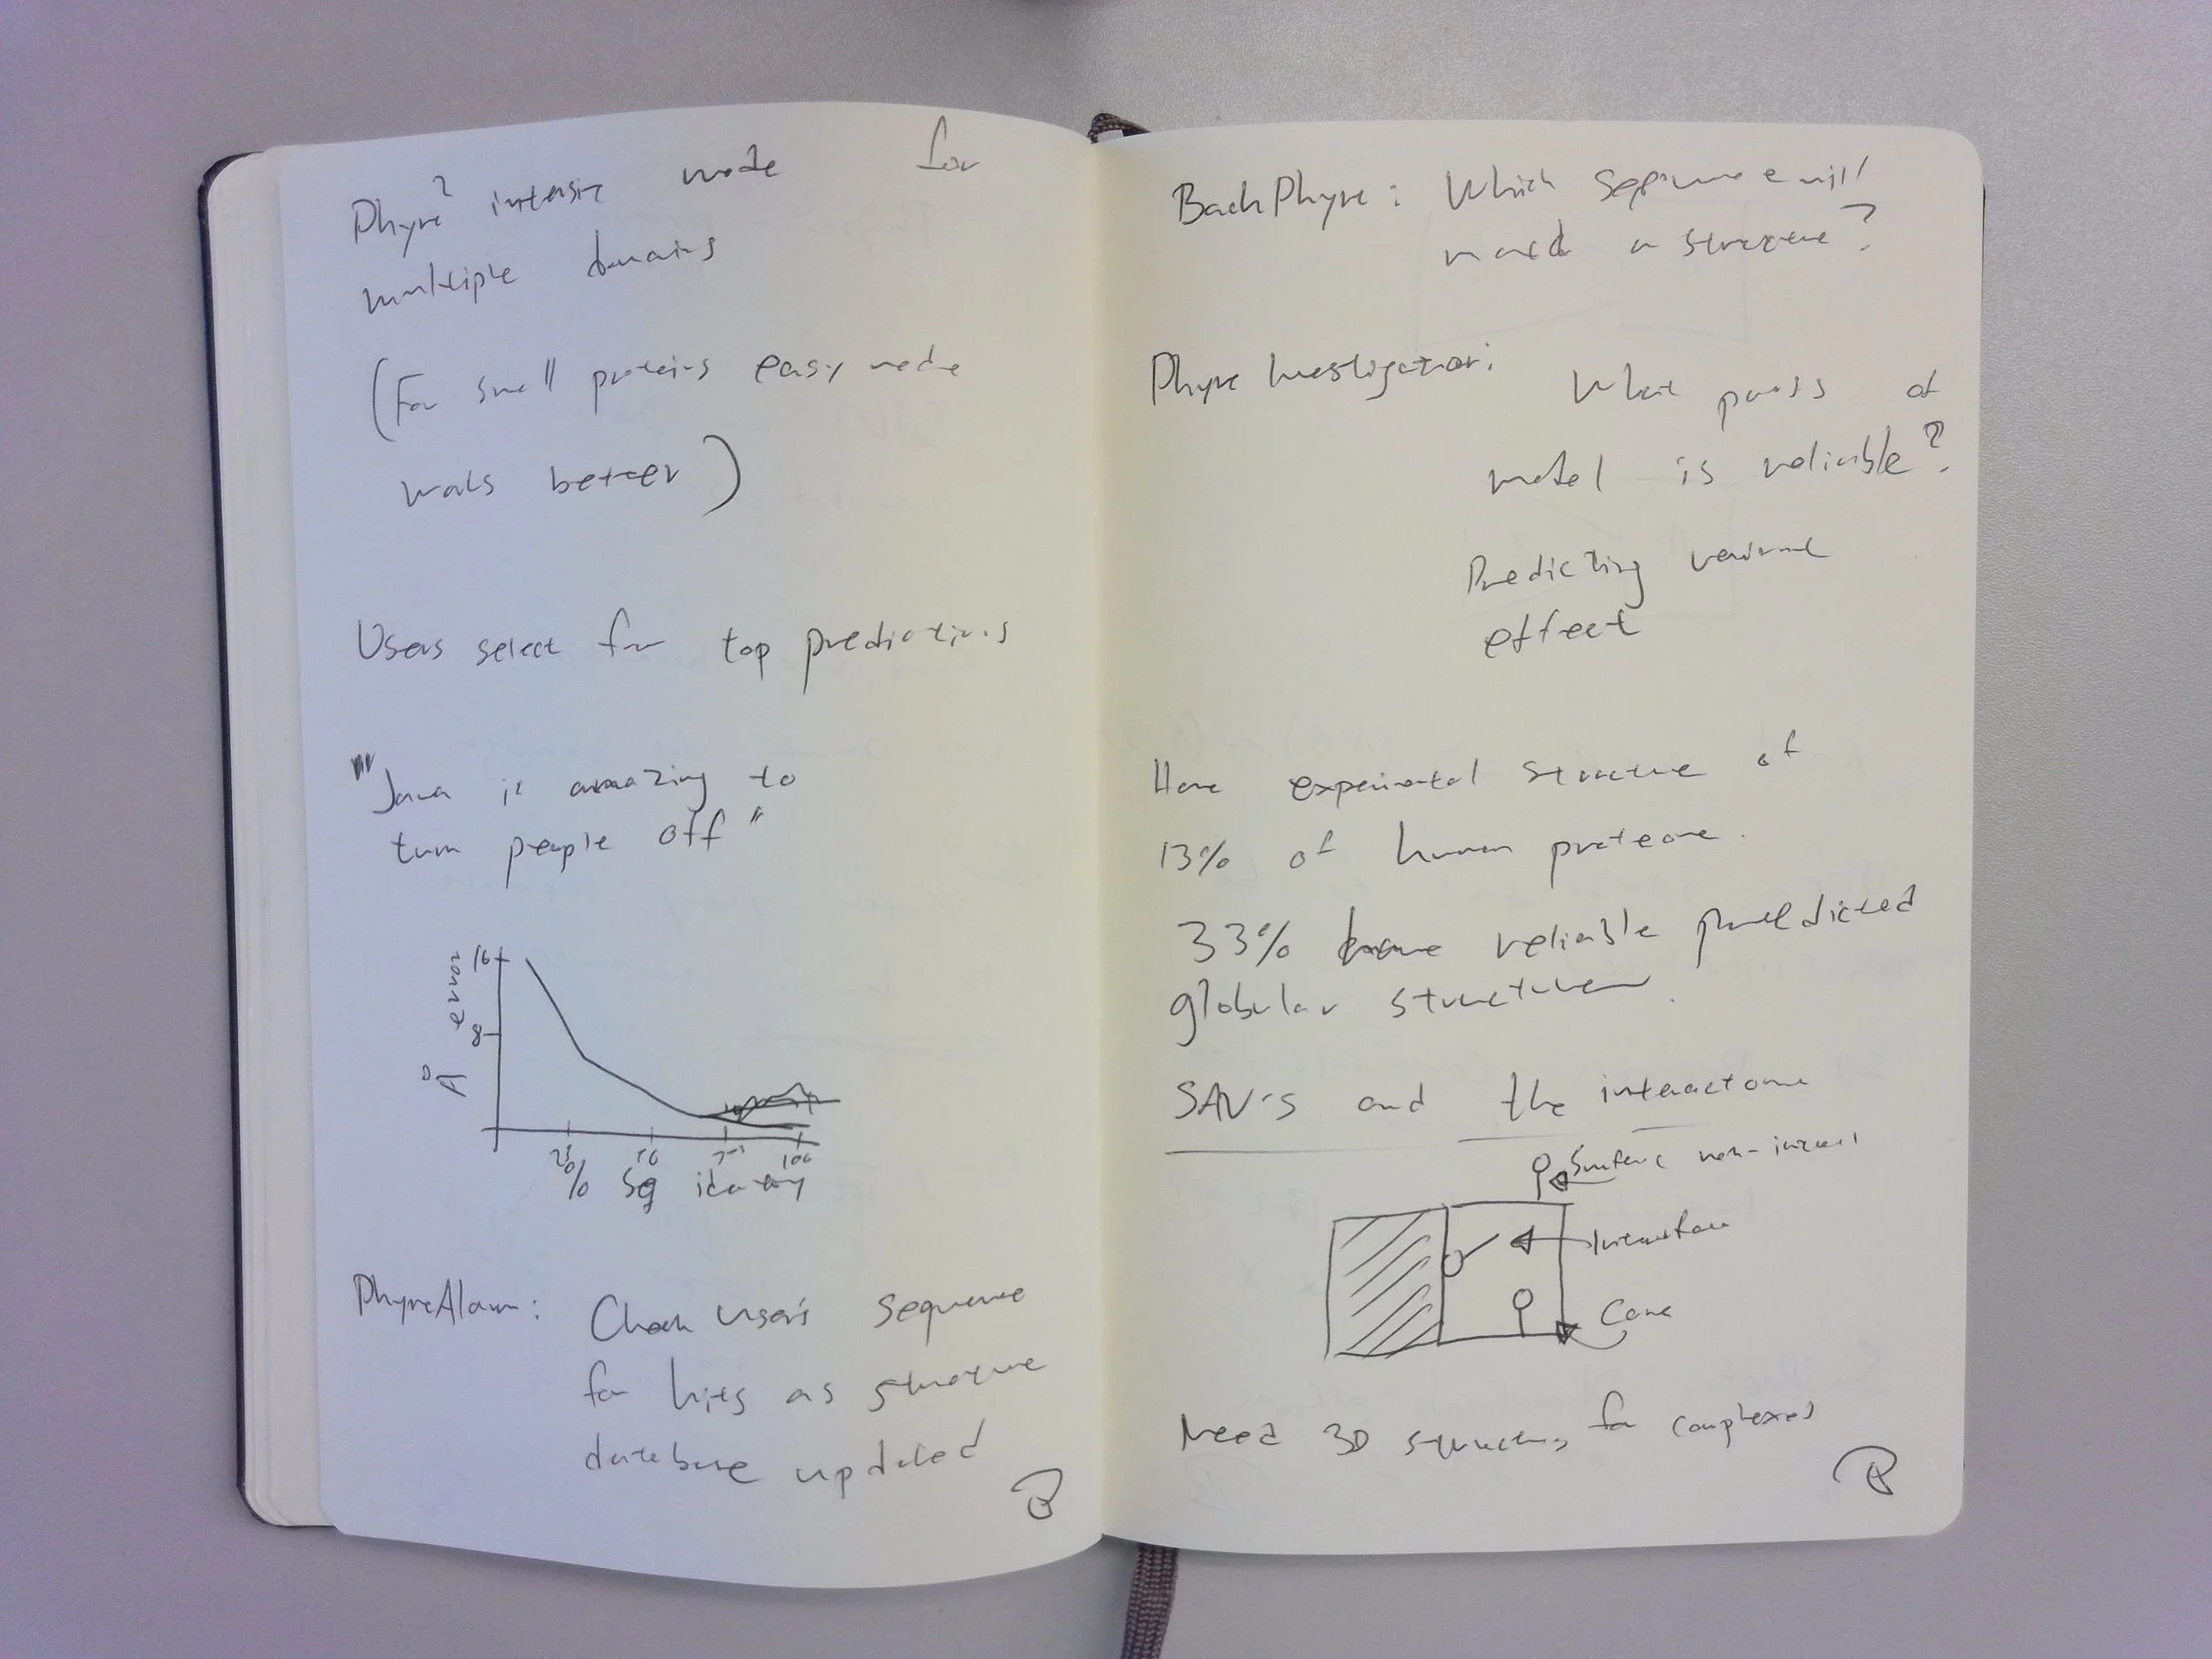 Phyre² intensive mode for
multiple domains
(For small proteins easy mode
works better)
Users select for top predictions
"Java is amazing to
turn people off"
16
8
Å error
25 50 75 100
% Seq identity
PhyreAlarm: Check user's sequence
for hits as structure
database updated
BackPhyre: Which sequence will
match a structure?
Phyre Investigator: What parts of
model is reliable?
Predicting variant
effect
Have experimental structure of
13% of human proteome.
33% have reliable predicted
globular structure.
SAV's and the interactome
Surface non-interact
Interface
Core
Need 3D structures for complexes